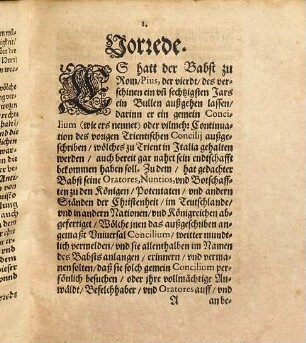 1.
Vorrede.
ES hatt der Babst zu
Rom/Pius, der vierdt/ des ver-
schinen ein vñ sechtzigsten Jars
ein Bullen außgehen lassen/
darinn er ein gemein Concilium
(wie ers nennet) oder vilmehr Continuation
des vorigen Trientischen Concilij außgeschriben
/ wölches zu Trient in Italia gehalten
werden / auch bereit gar nahet sein endtschafft
bekommen haben soll. Zu dem / hat gedachter
Babst seine Oratores, Nuntios, vnd Botschafften
zu den Königen / Potentaten / vnd andern
Ständen der Christenheit / im Teutschlande/
vnd in andern Nationen/ vnd Königreichen abgefertiget
/ Wölche jnen das außgeschriben angemaßt
Vniuersal Concilium/ weitter mundelich
vermelden/ vnd sie allenthalben im Namen
des Babsts anlangen / erinnern / vnd vermanen
solten/ daß sie solch gemein Concilium persönlich
besuchen / oder jhre vollmächtige Anwäldt
/ Befelchhaber / vnd Oratores auff / vnd
A
an be-